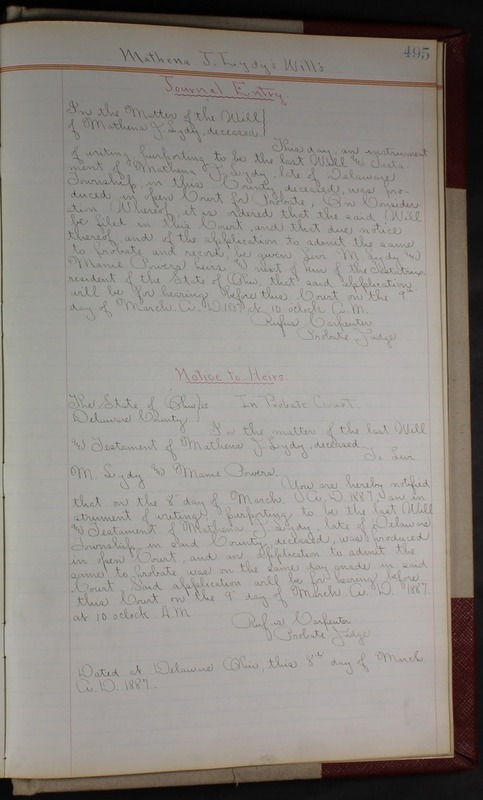 495
Mathena J. Lydy's Will's
Journal Entry.
In the Matter of the Will
of Mathena J. Lydy, deceased
This day, an instrument
of writing purporting to be the last Will & Testa-
ment of Mathena J. Lydy, late of Delaware
Township, in this County, deceased, was pro-
duced in open Court for Probate, On Consider-
ation Whereof, it is ordered that the said Will
be filed in this Court, and that due notice
thereof, and of the application to admit the same
to probate and record, be given M. Lydy &
Mamie Powers heirs & next of kin of the Testatrix
resident of the State of Ohio, that said application
will be for hearing before this Court on the 9"
day of March A. D. 1887 at 10 oclock A. M.
Rufus Carpenter
Probate Judge
Notice to Heirs.
The State of Ohio, ss In Probate Court.
Delaware County
In the matter of the last Will
& Testament of Mathena J. Lydy, deceased.
To
M. Lydy & Mamie Powers.
You are hereby notified
that on the 8" day of March A. D. 1887, an in
strument of writing purporting to be the last Will
& Testament of Mathena J. Lydy, late of Delaware
Township, in said County, deceased, was produced
in open Court, and an Application to admit the
same to probate was on the same day made in said
Court. Said application will be for hearing before
this Court on the 9" day of March A. D. 1887
at 10 oclock A.M
Rufus Carpenter
Probate Judge
Dated at Delaware Ohio, this 8th day of March
A. D. 1887.